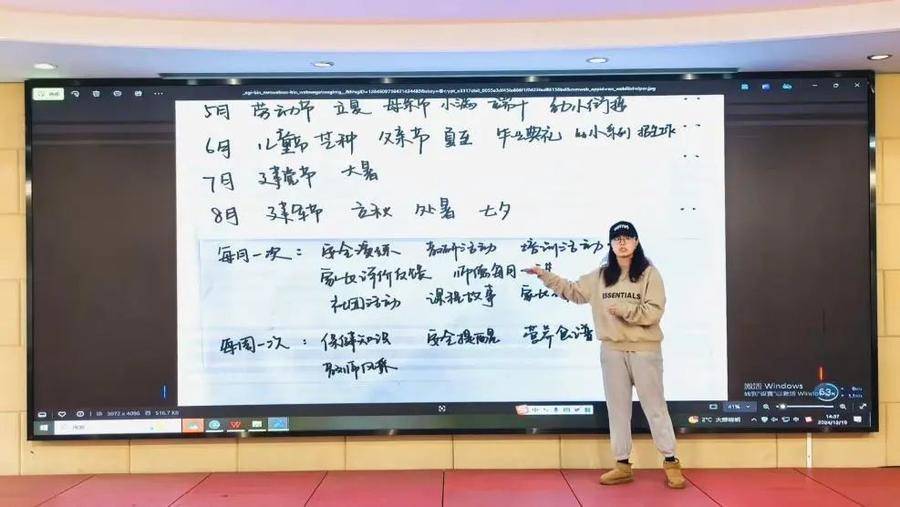 5月 劳动节 立夏 母亲节 小满 端午
6月 儿童节 芒种 父亲节 夏至 毕业典礼
7月 建党节 大暑
8月 建军节 立秋 处暑 七夕
每月一次： 安全演练 教研活动 培训活动
家长评价反馈 师德每月一讲
社团活动 课程故事 家长
每周一次： 保健知识 安全提醒 营养食谱
教师风采
ESSENTIALS
激活 Windows
转到"设置"以激活 Windows
63
3072 x 4096 516.7 KB
41%
中
2°C 大部晴朗
14:37
2024/12/19